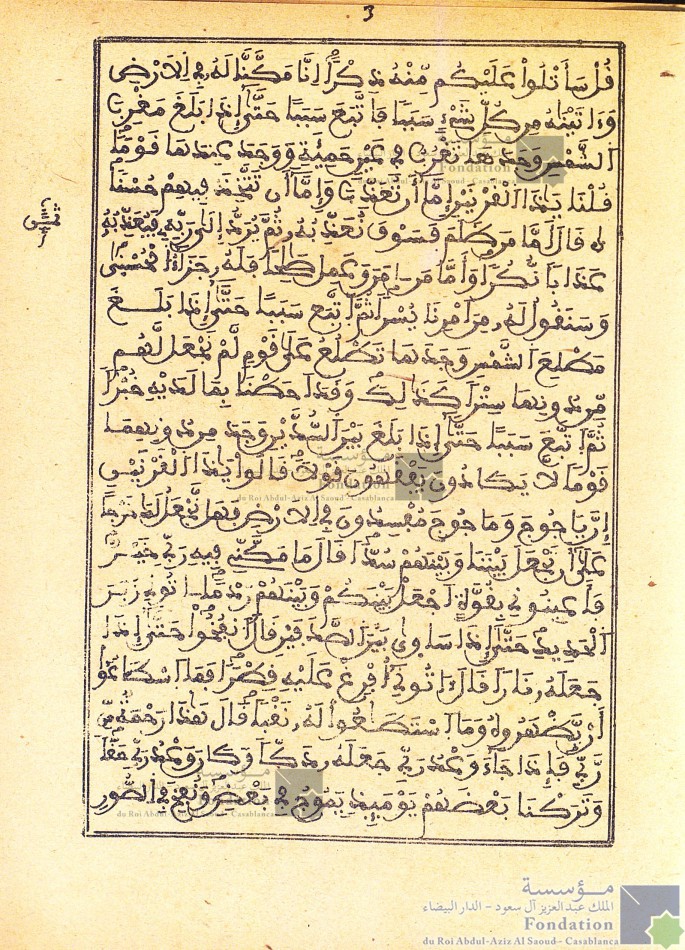 3
فُلْ سَأَتْلُواْ عَلَيْكُم مِّنْهُ ذِكْراً اِنَّا مَكَّنَّا لَهُۥ فِے اِلَارْضِ
وَءَاتَيْنَٰهُ مِن كُلِّ شَےْءٍ سَبَباً فَاتَّبَعَ سَبَباً حَتَّىٰٓ إِذَا بَلَغَ مَغْرِبَ
اَلشَّمْسِ وَجَدَهَا تَغْرُبُ فِے عَيْنٍ حَمِئَةٍ وَوَجَدَ عِندَهَا فَوْماً
فُلْنَا يَٰذَا اَلْفَرْنَيْنِ إِمَّآ أَن تُعَذِّبَ وَإِمَّآ أَن تَتَّخِذَ فِيهِمْ حُسْناً
ثمن
فَالَ أَمَّا مَن ظَلَمَ فَسَوْفَ نُعَذِّبُهُۥ ثُمَّ يُرَدُّ إِلَىٰ رَبِّهِۦ فَيُعَذِّبُهُۥ
عَذَاباً نُّكُراً وَأَمَّا مَنَ ـامَنَ وَعَمِلَ صَٰلِحاً فَلَهُۥ جَزَآءُ اُلْحُسْنَىٰ
وَسَنَفُولُ لَهُۥ مِنَ اَمْرِنَا يُسْراً ثُمَّ اَتَّبَعَ سَبَباً حَتَّىٰٓ إِذَا بَلَغَ
مَطْلِعَ اَلشَّمْسِ وَجَدَهَا تَطْلُعُ عَلَىٰ فَوْمٍ لَّمْ نَجْعَل لَّهُم
مِّن دُونِهَا سِتْراً كَذَٰلِكَ وَفَدَ اَحَطْنَا بِمَا لَدَيْهِ خُبْراً
ثُمَّ اَتَّبَعَ سَبَباً حَتَّىٰٓ إِذَا بَلَغَ بَيْنَ اَلسُّدَّيْنِ وَجَدَ مِن دُونِهِمَا
فَوْماً لاَّ يَكَادُونَ يَفْفَهُونَ فَوْلاً فَالُواْ يَٰذَا اَلْفَرْنَيْنِ
إِنَّ يَاجُوجَ وَمَاجُوجَ مُفْسِدُونَ فِے اِلَارْضِ فَهَلْ نَجْعَلُ لَكَ خَرْجاً
عَلَىٰٓ أَن تَجْعَلَ بَيْنَنَا وَبَيْنَهُمْ سُدّاً فَالَ مَا مَكَّنِّے فِيهِ رَبِّے خَيْرٌ
فَأَعِينُونِے بِفُوَّةٍ اَجْعَلْ بَيْنَكُمْ وَبَيْنَهُمْ رَدْماً ـاتُونِے زُبَرَ
اَلْحَدِيدِ حَتَّىٰٓ إِذَا سَاوَىٰ بَيْنَ اَلصَّدَفَيْنِ فَالَ اَنفُخُواْ حَتَّىٰٓ إِذَا
جَعَلَهُۥ نَاراً فَالَ ءَاتُونِےٓ أُفْرِغْ عَلَيْهِ فِطْراً فَمَا اَسْطَٰعُوٓاْ
أَنْ يَّظْهَرُوهُ وَمَا اَسْتَطَٰعُواْ لَهُۥ نَفْباً فَالَ هَٰذَا رَحْمَةٌ مِّن
رَّبِّے فَإِذَا جَآءَ وَعْدُ رَبِّے جَعَلَهُۥ دَكّاً وَكَانَ وَعْدُ رَبِّے حَفّاً
وَتَرَكْنَا بَعْضَهُمْ يَوْمَئِذٍ يَمُوجُ فِے بَعْضٍ وَنُفِخَ فِے اِلصُّورِ
مؤسسة
الملك عبد العزيز آل سعود – الدار البيضاء
Fondation
du Roi Abdul-Aziz Al Saoud - Casablanca